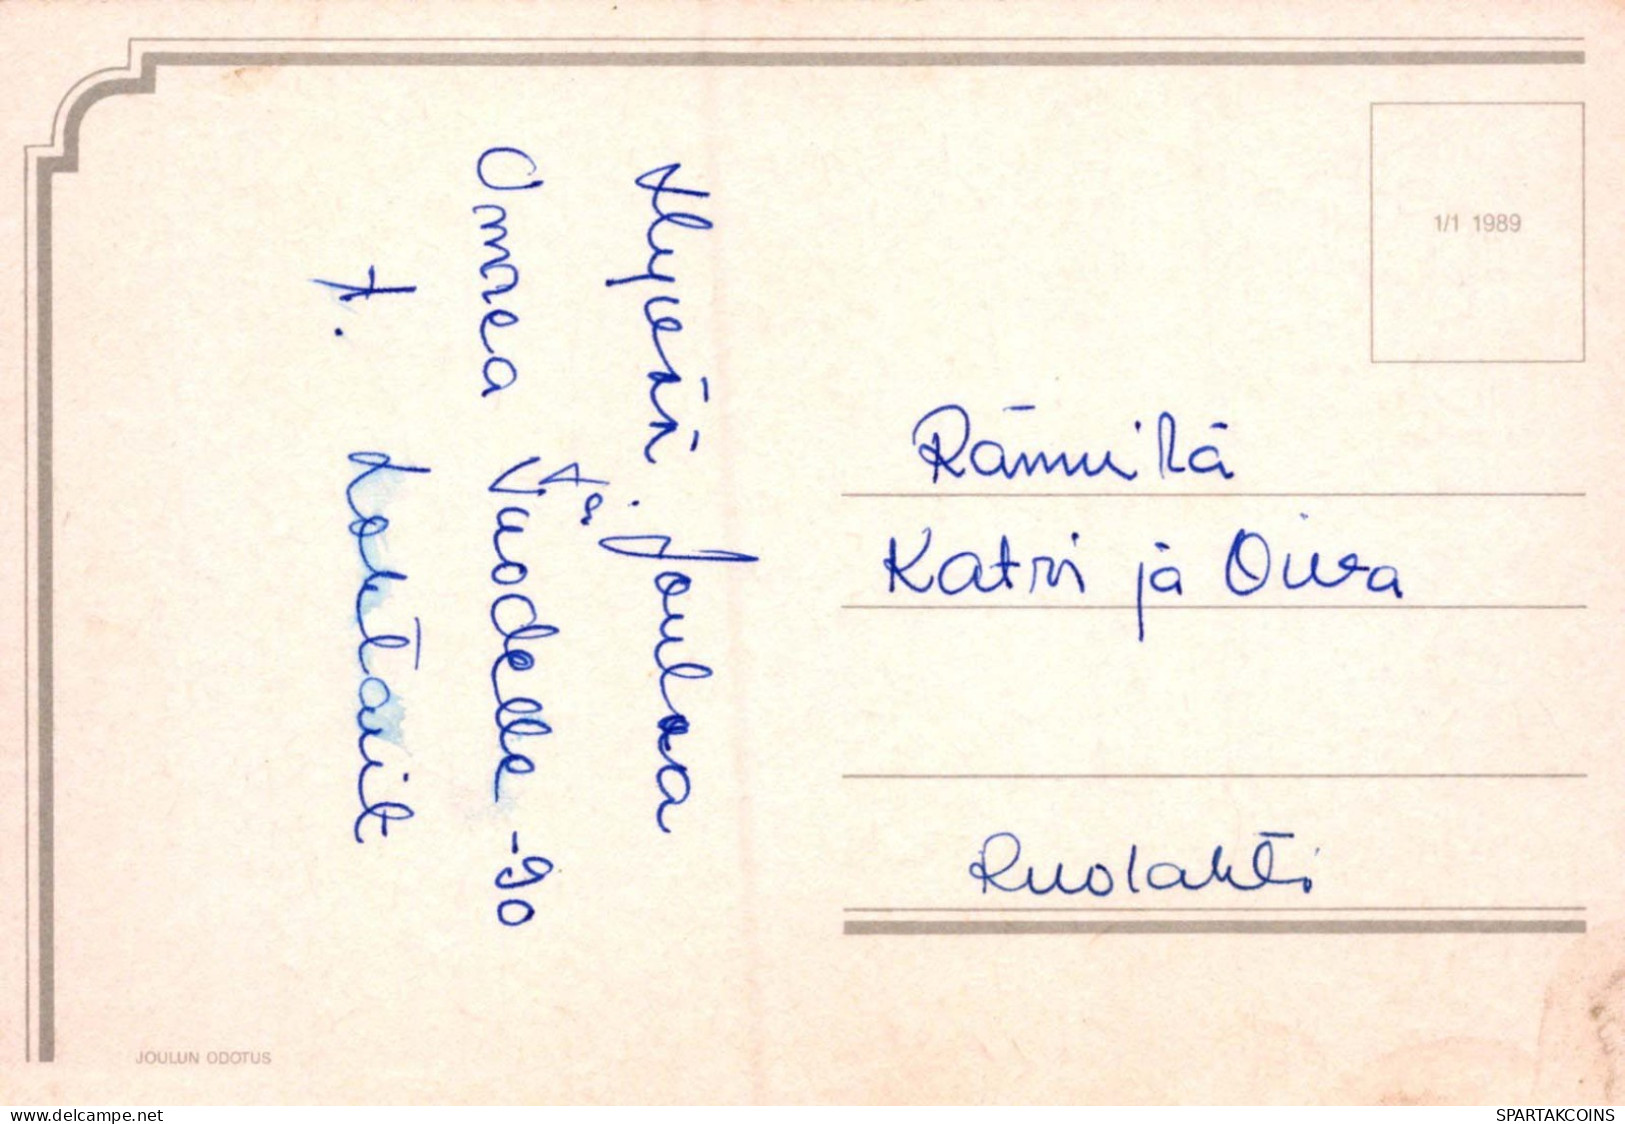 Hyvää Joulua
ja
Onnea Vuodelle -90
T. Lahtáit
1/1 1989
Rämmikä
Katri ja Oiva
Ruolahti
JOULUN ODOTUS
www.delcampe.net
SPARTAKCOINS